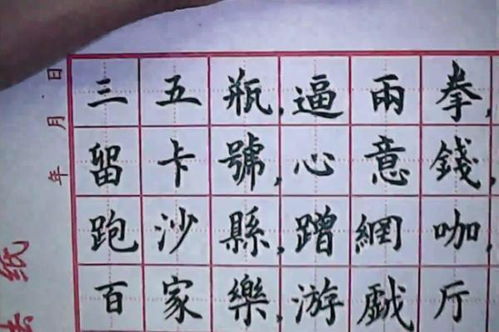 三五瓶,逼兩拳,
留卡號,心意錢,
跑沙縣,蹭網咖,
百家樂,游戲斤
年 月 日
纸